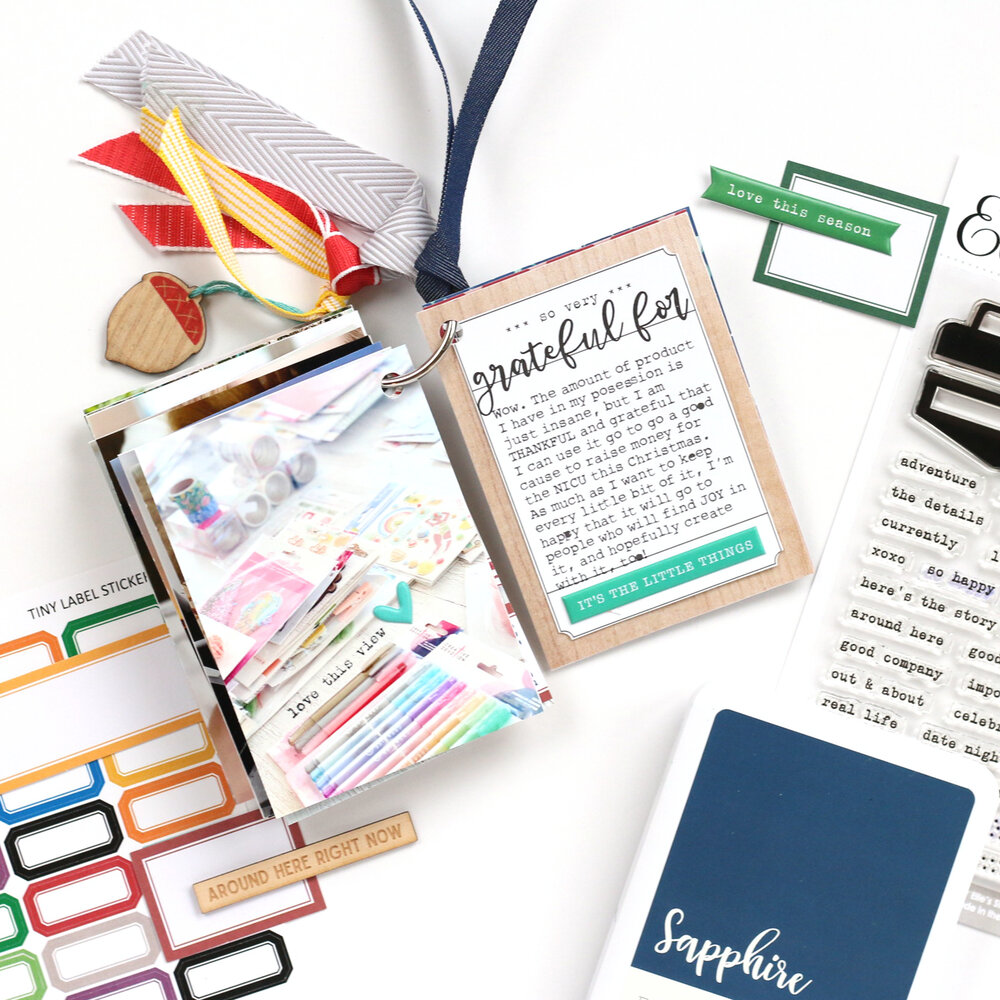 love this season
*** so very ***
grateful for
Wow. The amount of product
I have in my posession is
just insane, but I am
THANKFUL and grateful that
I can use it go to go a good
cause to raise money for
the NICU this Christmas.
As much as I want to keep
every little bit of it, I'm
happy that it will go to
people who will find JOY in
it, and hopefully create
with it, too!
IT'S THE LITTLE THINGS
love this view
TINY LABEL STICKER
AROUND HERE RIGHT NOW
adventure
the details
currently
xoxo
so happy
here's the story
around here
good
good company
impo
out & about
celebr
real life
date nigh
Sapphire